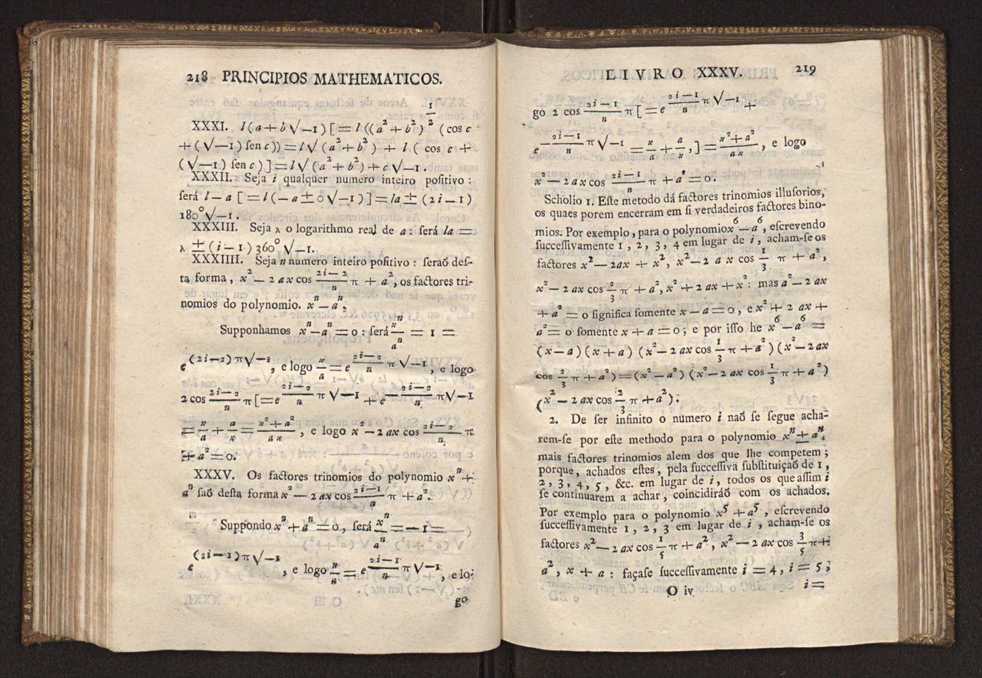 218 PRINCIPIOS MATHEMATICOS.
XXXI. l(a+b√−1)[=l((a²+b²)^½ (cos c
+(√−1) ſen c))=l√(a²+b²)+l(cos c+
(√−1) ſen c)]=l√(a²+b²)+c√−1.
XXXII. Seja i qualquer numero inteiro poſitivo:
ſerá l−a[=l(−a±0√−1)]=la±(2i−1)
180°√−1.
XXXIII. Seja λ o logarithmo real de a: ſerá la=
λ±(i−1)360°√−1.
XXXIIII. Seja n numero inteiro poſitivo: ſeraõ deſ-
ta forma, x²−2ax cos (2i−2)/n π+a², os factores tri-
nomios do polynomio. xⁿ−aⁿ.
Supponhamos xⁿ−aⁿ=0: ſerá xⁿ/aⁿ=1=
e^((2i−2)π√−1), e logo x/a=e^((2i−2)/n π√−1), e logo
2 cos (2i−2)/n π[=e^((2i−2)/n π√−1)+e^(−(2i−2)/n π√−1)
=x/a+a/x=(x²+a²)/ax, e logo x²−2ax cos (2i−2)/n π
+a²=0.
XXXV. Os factores trinomios do polynomio xⁿ+
aⁿ ſaõ deſta forma x²−2ax cos (2i−1)/n π+a².
Suppondo xⁿ+aⁿ=0, ſerá xⁿ/aⁿ=−1=
e^((2i−1)π√−1), e logo x/a=e^((2i−1)/n π√−1), e lo-
go
LIVRO XXXV. 219
go 2 cos (2i−1)/n π[=e^((2i−1)/n π√−1)+
e^(−(2i−1)/n π√−1)=x/a+a/x,]=(x²+a²)/ax, e logo
x²−2ax cos (2i−1)/n π+a²=0.
Scholio 1. Eſte metodo dá factores trinomios illuſorios,
os quaes porem encerram em ſi verdadeiros factores bino-
mios. Por exemplo, para o polynomio x⁶−a⁶, eſcrevendo
ſucceſſivamente 1, 2, 3, 4 em lugar de i, acham-ſe os
factores x²−2ax+x², x²−2ax cos 1/3 π+a²,
x²−2ax cos 2/3 π+a², x²+2ax+x²: mas a²−2ax
+a²=0 ſignifica ſomente x−a=0, e x²+2ax+
a²=0 ſomente x+a=0; e por iſſo he x⁶−a⁶=
(x−a)(x+a)(x²−2ax cos 1/3 π+a²)(x²−2ax
cos 2/3 π+a²)=(x²−a²)(x²−2ax cos 1/3 π+a²)
(x²−2ax cos 2/3 π+a²);
2. De ſer infinito o número i naõ ſe ſegue acha-
rem-ſe por eſte methodo para o polynomio xⁿ±aⁿ,
mais factores trinomios alem dos que lhe competem;
porque, achados eſtes, pela ſucceſſiva ſubſtituiçaõ de 1,
2, 3, 4, 5, &c. em lugar de i, todos os que aſſim i
ſe continuarem a achar, coincidiráõ com os achados.
Por exemplo para o polynomio x⁵+a⁵, eſcrevendo
ſucceſſivamente 1, 2, 3 em lugar de i, acham-ſe os
factores x²−2ax cos 1/5 π+a², x²−2ax cos 3/5 π+
a², x+a: façaſe ſucceſſivamente i=4, i=5;
O iv
i=